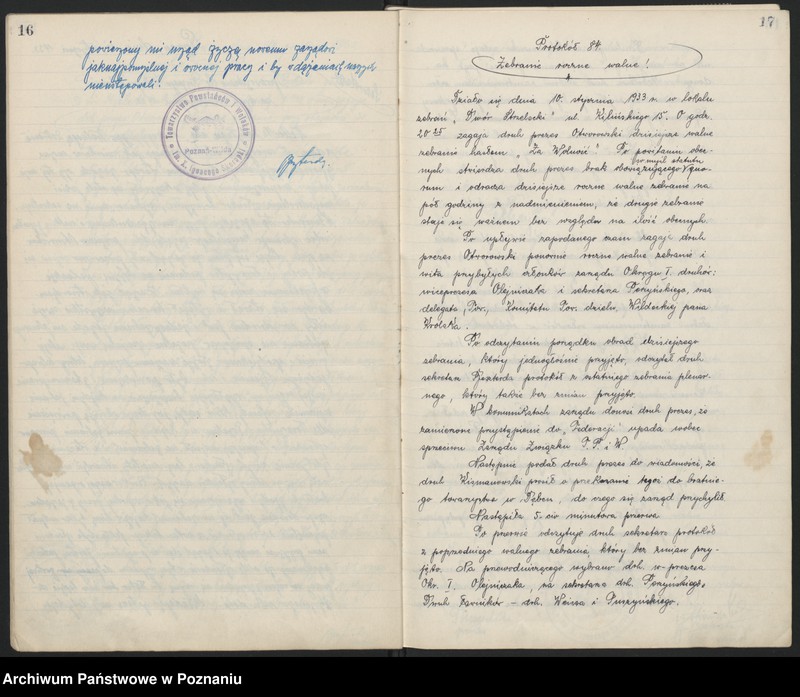 16
powierzony mi urząd życzą nowemu zarządowi
jaknajpomyślniej i owocnej pracy i by w dążeniach naszych
nie ustępowali.
Towarzystwo Powstańców i Wojaków
Poznań
im. Ignacego
17
Protokół 84.
Zebranie roczne walne!
Działo się dnia 10. stycznia 1933 r. w lokalu
zebrań „Dwór Strzelecki" ul. Kilińskiego 15. O godz.
20 25 zagaja druh prezes Otworowski dzisiejsze walne
zebranie hasłem „Za Wolność" Po powitaniu obec-
nych stwierdza druh prezes brak obowiązującego w myśl statutu quo-
rum i odracza dzisiejsze roczne walne zebranie na
pół godziny z nadmienieniem, że drugie zebranie
staje się ważnem bez względu na ilość obecnych.
Po upływie zapodanego czasu zagaja druh
prezes Otworowski ponownie roczne walne zebranie i
wita przybyłych członków zarządu Okręgu I. druhów:
wiceprezesa Olejniczaka i sekretarza oraz
delegata Pow. Komitetu Pow. dzieln. Wildeckiej pana
Królaka.
Po odczytaniu porządku obrad dzisiejszego
zebrania, który jednogłośnie przyjęto, odczytał druh
sekretarz protokół z ostatniego zebrania plenar-
nego, który także bez zmian przyjęto.
W komunikatach zarządu donosi druh prezes, że
zamierzone przystąpienie do „Federacji" upada wobec
sprzeciwu Zarządu Związku T. P. i W.
Następnie podał druh prezes do wiadomości, że
druh prosił o przekazanie tegoż do bratnie-
go towarzystwa w do czego się zarząd przychylił.
Nastąpiła 5-cio minutowa przerwa.
Po przerwie odczytuje druh sekretarz protokół
z poprzedniego walnego zebrania, który bez zmian przy-
jęto. Na przewodniczącego wybrano drh. w-prezesa
Okr. I. Olejniczaka, na sekretarza drh.
Dwuch ławników – drh. Weissa i Puszyńskiego.
Archiwum Państwowe w Poznaniu